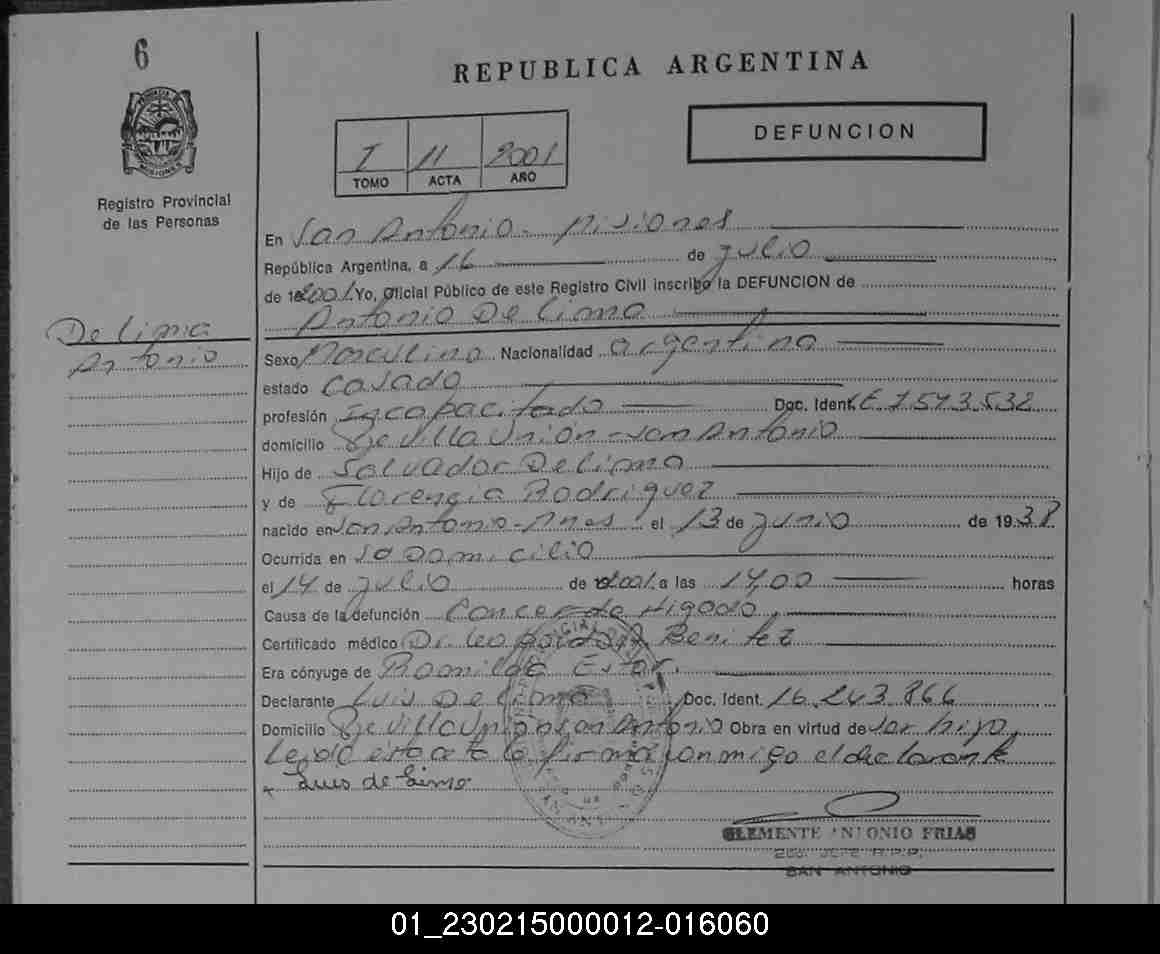 6
REPUBLICA ARGENTINA
DEFUNCION
I 11 2001
TOMO ACTA AÑO
Registro Provincial
de las Personas
En San Antonio - Misiones
República Argentina, a 16 de Julio
de 2001. Yo, Oficial Público de este Registro Civil inscribo la DEFUNCION de
Antonio De Lima
De Lima
Antonio
Sexo Masculino. Nacionalidad argentina
estado Casado
profesión Incapacitado Doc. Ident. 7.573.532
domicilio Villa Unión - San Antonio
Hijo de Salvador De Lima
y de Florencia Rodriguez
nacido en San Antonio - Mnes el 13 de Junio de 1938
Ocurrida en su Domicilio
el 14 de Julio de 2001. a las 14,00 horas
Causa de la defunción Cancer de Higado.
Certificado médico Dr. Benitez
Era cónyuge de Romilda
Declarante Luis De Lima Doc. Ident. 16.243.866
Domicilio Villa Union San Antonio Obra en virtud de ser hijo.
Leída esta acta la firma conmigo el declarante
Luis de Lima
CLEMENTE ANTONIO FRIAS
JEFE R.P.P.
SAN ANTONIO
01_230215000012-016060